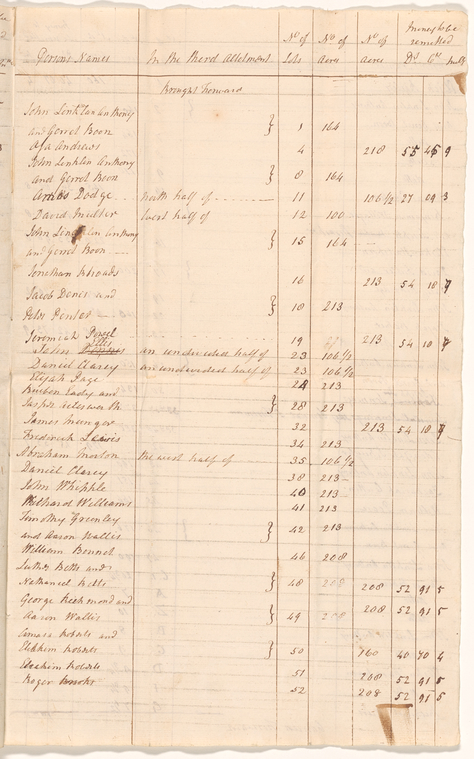 Persons Names In the third Allotment No of Lots No of acres No of acres money to be remitted Ds Cts mills
Brought forward
John Linklan Anthony
and Gerret Boon } 164
Asa Andrews 4 218 55 9
John Linklin Anthony
and Gerrot Boon } 8 164
Dodge north half of 11 106 1/2 27 09 3
David west half of 12 100
John Anthony
and Gerret Boon } 15 164
Jonathan Rhoads 16 213 54 10
Jacob and
} 18 213
Jeremiah 19 213 54 10
Ellis
John an undivided half of 23 106 1/2
Daniel Clarey an undivided half of 23 106 1/2
Elijah Page 213
Reubon Eady and
Jasper } 28 213
James Munger 32 213 54 10
Frederick Lewis 34 213
Abraham Morton the west half of 35 106 1/2
Daniel Clarey 38 213
John Whipple 40 213
Richard Williams 41 213
Timothy Greenley
and Aaron Wallis } 42 213
William Bonnet 46 208
Luther Betts and
Nathaniel Betts } 48 208 208 52 91 5
George and
Aaron Wallis } 49 208 52 91 5
Amasa Roberts and
Roberts } 50 160 40 70 4
Roberts 51 208 52 91 5
Roger Brooks 52 208 52 91 5